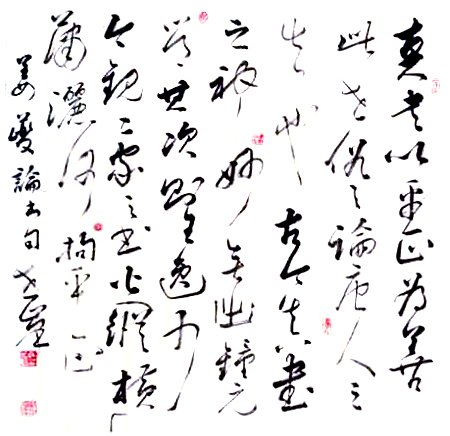 真書以平正為善
此世俗之論唐人之
失也古今真書
之神妙無出鍾元
常其次則王逸少
今觀二家之書皆縱橫
瀟灑何拘平正
姜夔論書句